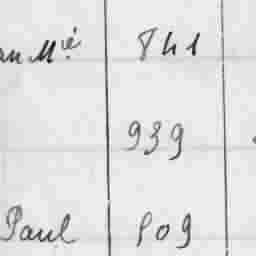 an Mié 841
939
Paul 809